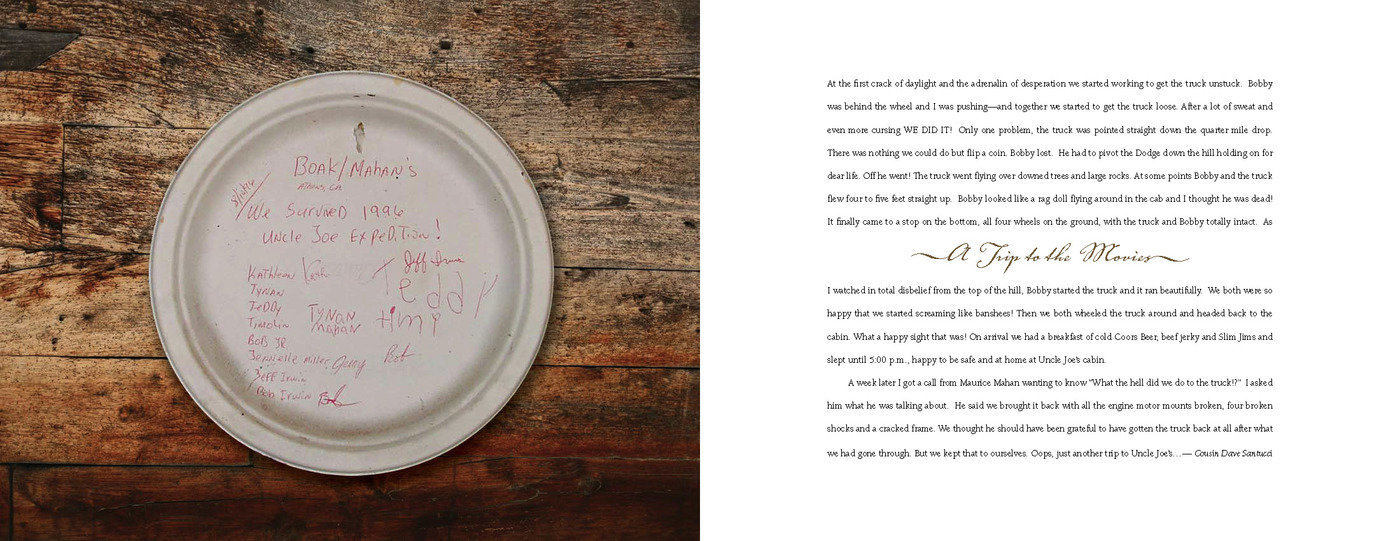 BOAK/MAHAN'S
ATHENS, CA
We Survived 1996
Uncle Joe Expedition!
Kathleen
Tynan
Teddy
Timolin
Bob Jr
Jeannelle Miller
Jeff Irwin
Bob Irwin
Jeff Irwin
Teddy
Tynan
Mahan
timi
Gerry
Bob
At the first crack of daylight and the adrenalin of desperation we started working to get the truck unstuck. Bobby
was behind the wheel and I was pushing—and together we started to get the truck loose. After a lot of sweat and
even more cursing WE DID IT! Only one problem, the truck was pointed straight down the quarter mile drop.
There was nothing we could do but flip a coin. Bobby lost. He had to pivot the Dodge down the hill holding on for
dear life. Off he went! The truck went flying over downed trees and large rocks. At some points Bobby and the truck
flew four to five feet straight up. Bobby looked like a rag doll flying around in the cab and I thought he was dead!
It finally came to a stop on the bottom, all four wheels on the ground, with the truck and Bobby totally intact. As
A Trip to the Movies
I watched in total disbelief from the top of the hill, Bobby started the truck and it ran beautifully. We both were so
happy that we started screaming like banshees! Then we both wheeled the truck around and headed back to the
cabin. What a happy sight that was! On arrival we had a breakfast of cold Coors Beer, beef jerky and Slim Jims and
slept until 5:00 p.m., happy to be safe and at home at Uncle Joe's cabin.
A week later I got a call from Maurice Mahan wanting to know "What the hell did we do to the truck!?" I asked
him what he was talking about. He said we brought it back with all the engine motor mounts broken, four broken
shocks and a cracked frame. We thought he should have been grateful to have gotten the truck back at all after what
we had gone through. But we kept that to ourselves. Oops, just another trip to Uncle Joe's…— Cousin Dave Santucci